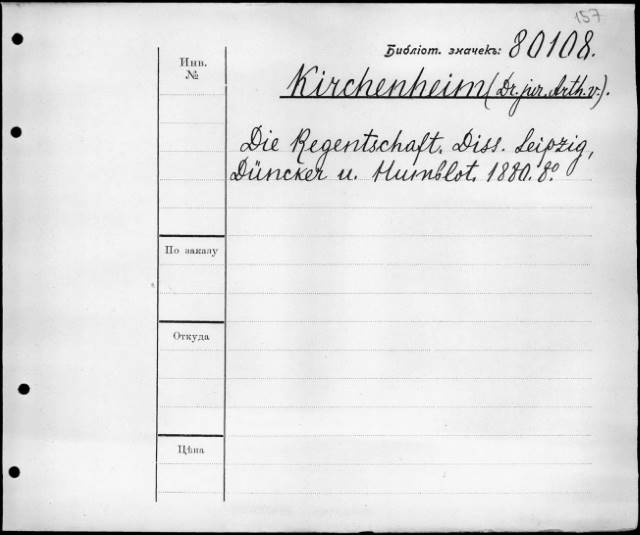 157
Библіот. значекъ: 80108.
Инв.
№
Kirchenheim (Dr. jur. Arth. v.).
Die Regentschaft. Diss. Leipzig,
Düncker u. Humblot. 1880. 8º.
По заказу
Откуда
Цѣна